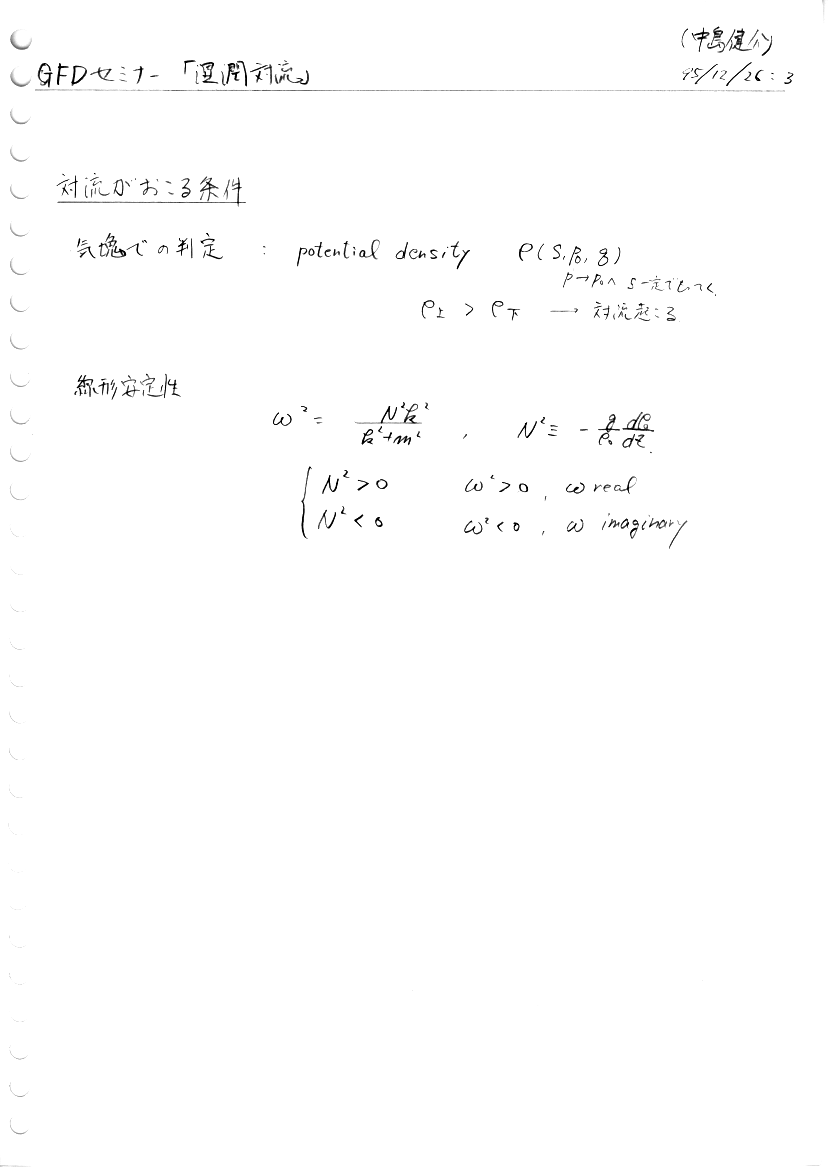 (中島健介)
GFDセミナー「湿潤対流」 95/12/26:3
対流がおこる条件
気塊での判定 : potential density ρ(S, p₀, q)
p→p₀へ S一定でもってく
ρ上 > ρ下 → 対流起こる
線形安定性
ω² = N²k² / (k²+m²) , N² ≡ - g/ρ₀ dρ₀/dz.
{ N² > 0 ω² > 0 , ω real
N² < 0 ω² < 0 , ω imaginary